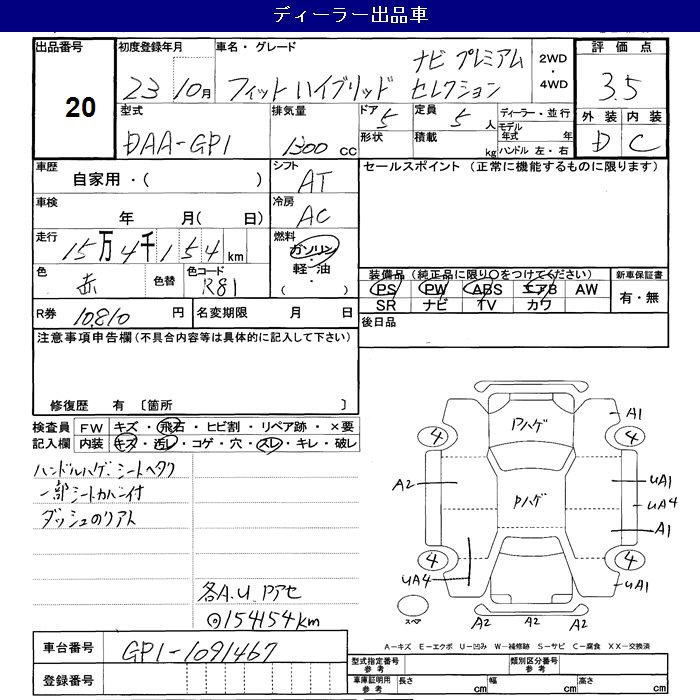 ディーラー出品車
出品番号 初度登録年月 車名・グレード 評価点
20 23 10月 フィットハイブリッド ナビプレミアム セレクション 2WD ・ 4WD 3.5
型式 排気量 ドア 5 定員 5人 ディーラー・並行 外装 内装
DAA-GP1 1300 cc 形状 積載 kg モデル年式 年式 ハンドル 左・右 D C
車歴 シフト セールスポイント (正常に機能するものに限ります)
自家用・( ) AT
車検 冷房
年 月( 日) AC
走行 燃料
15万4千154 km ガソリン・軽油
色 色替 色コード ( )
赤 R81
装備品 (純正品に限り○をつけてください) 新車保証書
PS PW ABS エアB AW 有・無
SR ナビ TV カワ
R券 10,810 円 名変期限 月 日 後日品
注意事項申告欄 (不具合内容等は具体的に記入して下さい)
修復歴 有 〔箇所 〕
検査員 FW キズ・飛石・ヒビ割・リペア跡・×要
記入欄 内装 キズ・汚レ・コゲ・穴・スレ・キレ・破レ
ハンドルハゲ、シートヘタリ
一部シートカバー付
ダッシュのリアト
各A.U Pアセ
◎154154km
Pハゲ
A1
4 4
A2 Pハゲ UA1
UA4
A1
4 4
UA4 UA1
スペア A2 A2 A2
A-キズ E-エクボ U-凹み W-補修跡 S-サビ C-腐食 XX-交換済
車台番号 GP1-1091467
登録番号
型式指定番号 参考 類別区分番号 参考
車庫証明用 参考 長さ cm 幅 cm 高さ cm